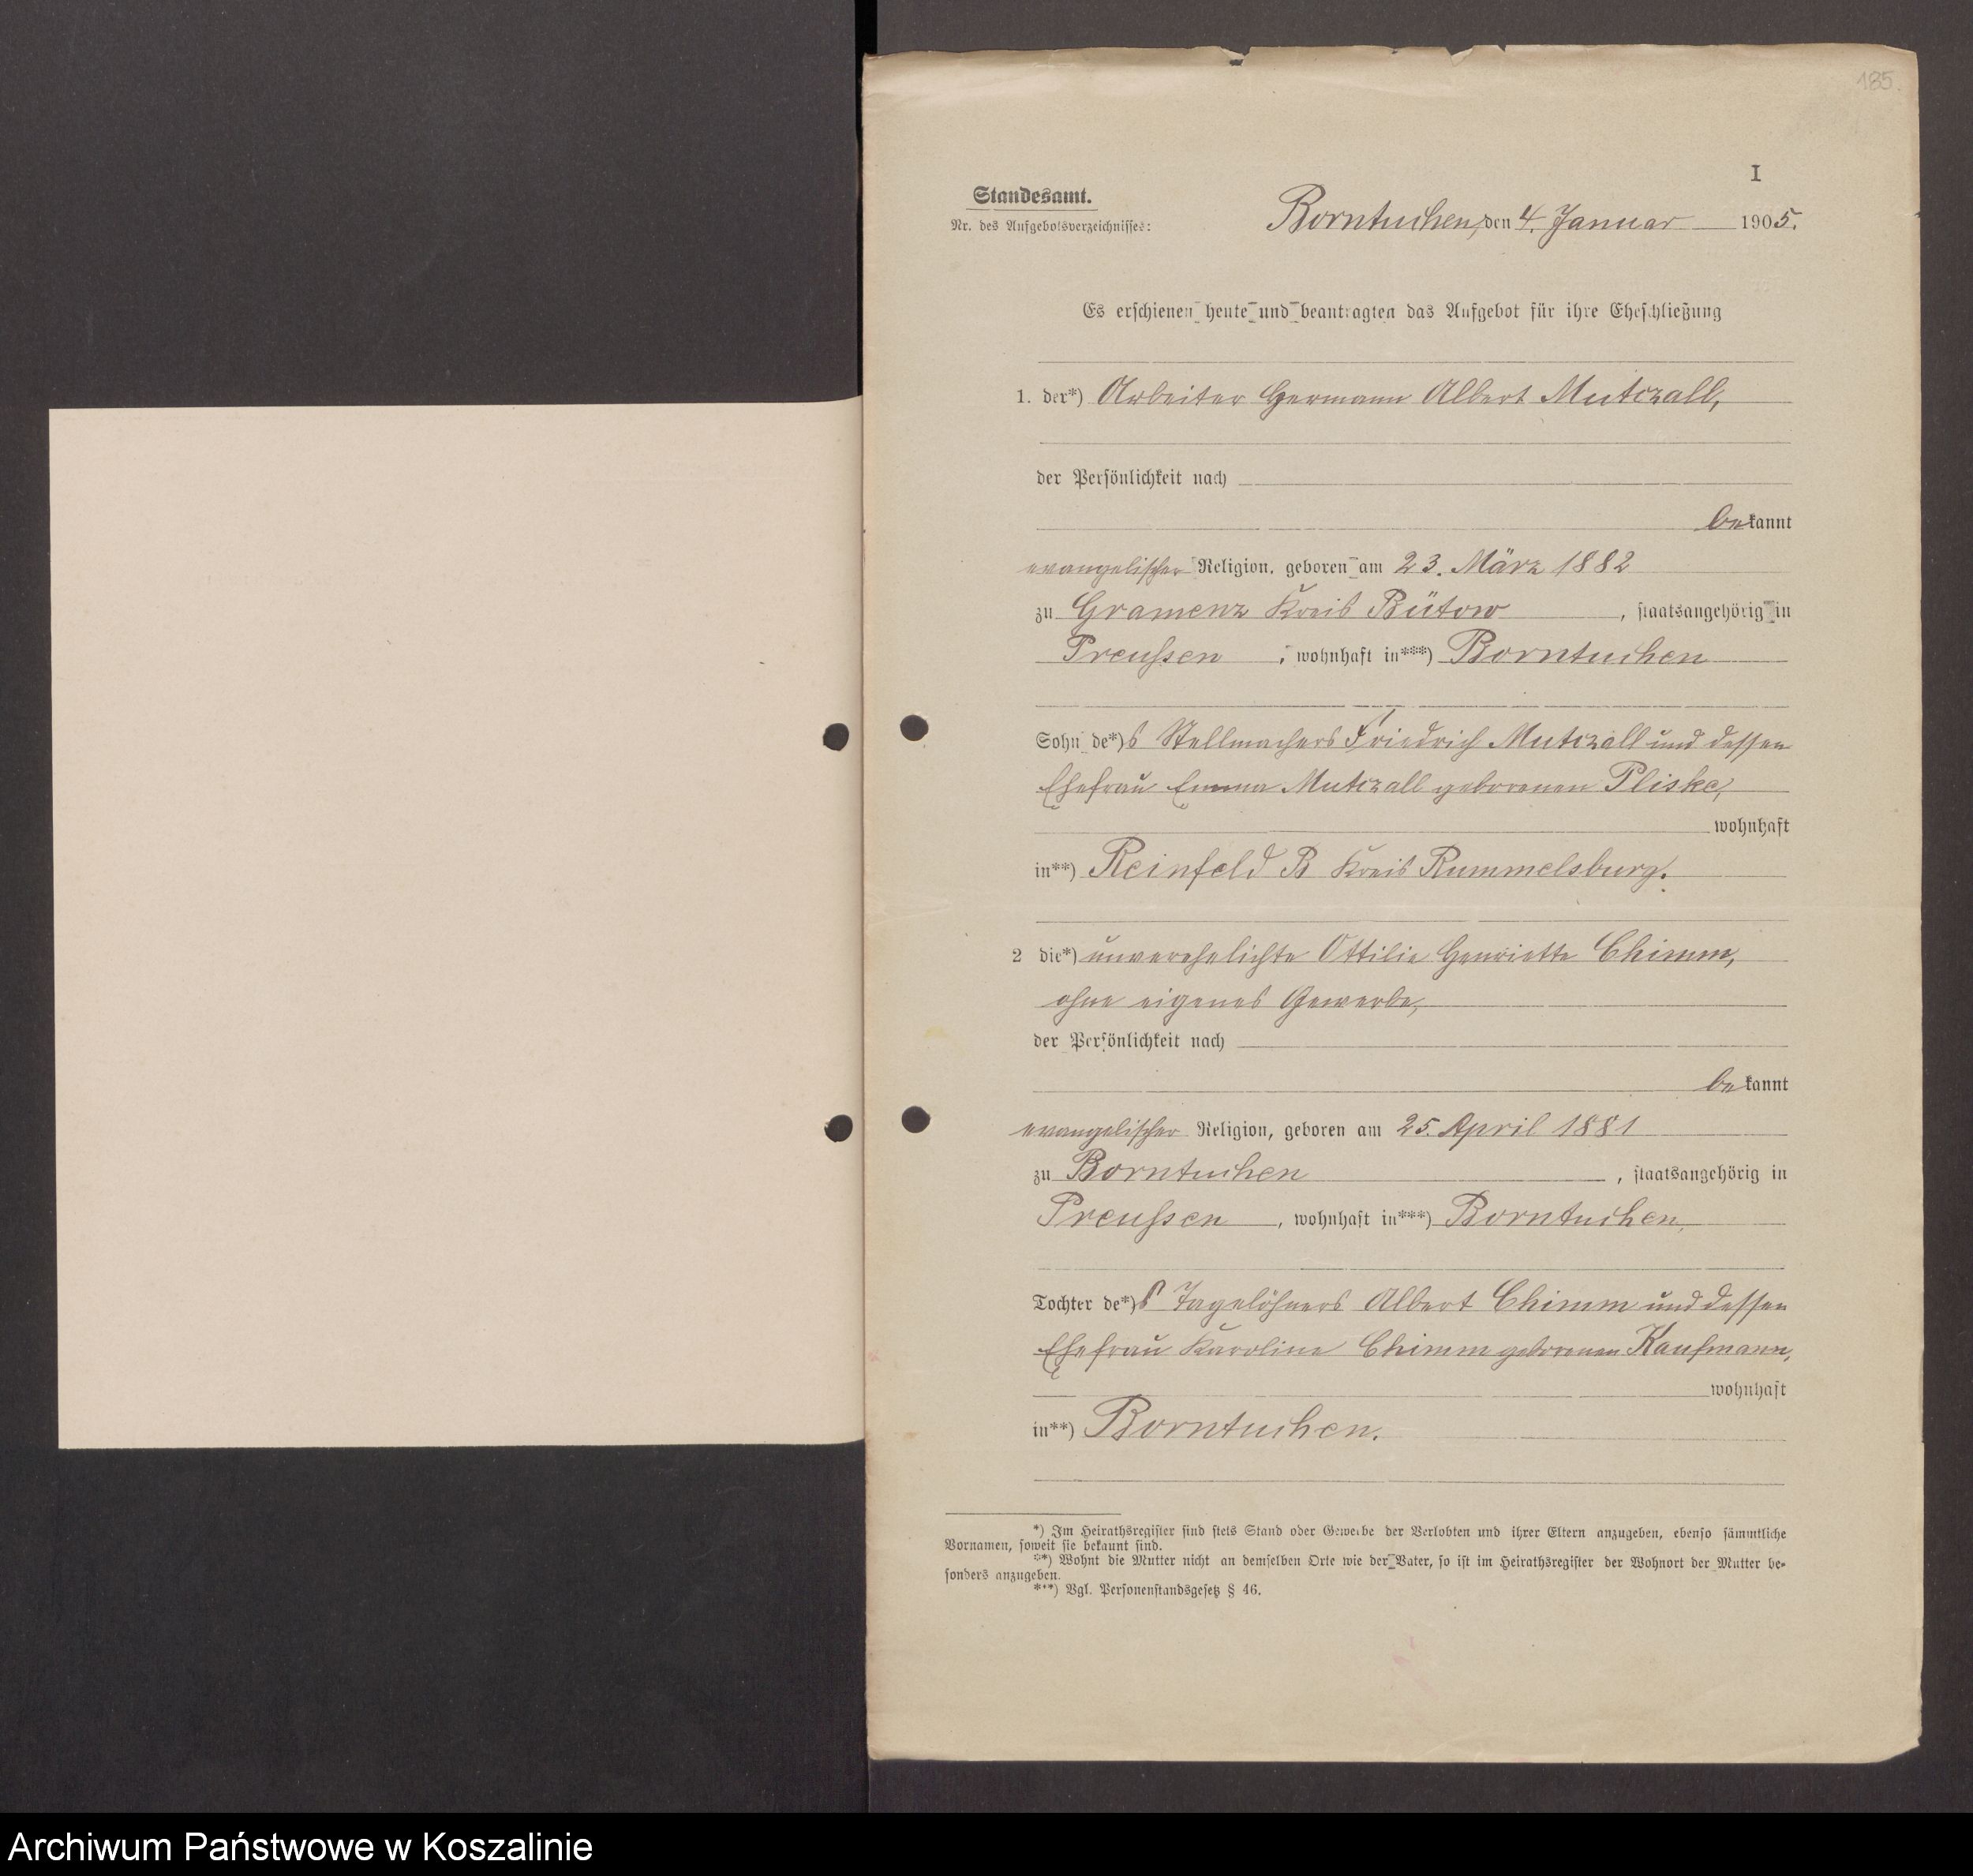 185.
I
Standesamt.
Borntuchen, den 4. Januar 1905.
Nr. des Aufgebotsverzeichnisses:
Es erschienen heute und beantragten das Aufgebot für ihre Eheschließung
1. der*) Arbeiter Hermann Albert Mutczall,
der Persönlichkeit nach
bekannt
evangelischer Religion, geboren am 23. März 1882
zu Gramenz Kreis Bütow, staatsangehörig in
Preußen, wohnhaft in***) Borntuchen
Sohn de*)s Stellmachers Friedrich Mutczall und dessen
Ehefrau Emma Mutczall geborenen Pliske,
wohnhaft
in**) Reinfeld B Kreis Rummelsburg.
2 die*) unverehelichte Ottilie Henriette Chimm,
ohne eigenes Gewerbe,
der Persönlichkeit nach
bekannt
evangelischer Religion, geboren am 25. April 1881
zu Borntuchen, staatsangehörig in
Preußen, wohnhaft in***) Borntuchen,
Tochter de*)s Tagelöhners Albert Chimm und dessen
Ehefrau Karoline Chimm geborenen Kaufmann,
wohnhaft
in**) Borntuchen.
*) Im Heirathsregister sind stets Stand oder Gewerbe der Verlobten und ihrer Eltern anzugeben, ebenso sämmtliche
Vornamen, soweit sie bekannt sind.
**) Wohnt die Mutter nicht an demselben Orte wie der Vater, so ist im Heirathsregister der Wohnort der Mutter be-
sonders anzugeben.
***) Vgl. Personenstandsgesetz § 46.
Archiwum Państwowe w Koszalinie